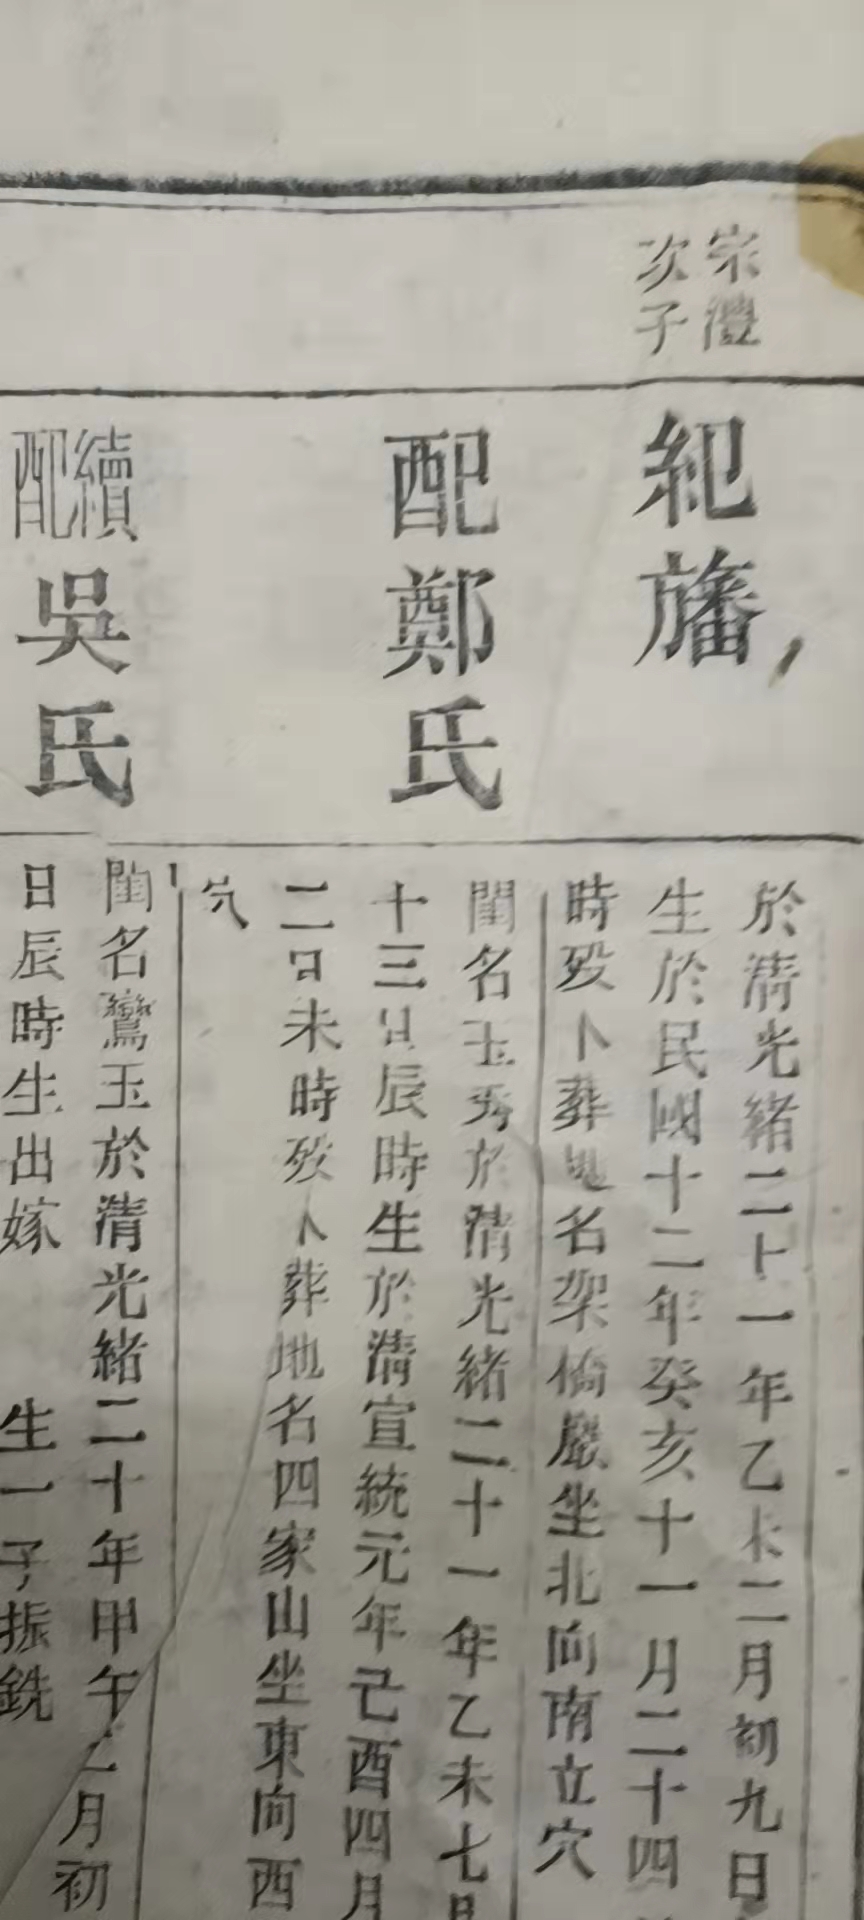 宗澧
次子
紀旛
於清光緒二十一年乙未二月初九日
生於民國十二年癸亥十一月二十四
時歿卜葬地名架橋嚴坐北向南立穴
配鄭氏
閨名玉秀於清光緒二十一年乙未七月
十三日辰時生於清宣統元年己酉四月
二日未時歿卜葬地名四家山坐東向西
穴
續配吳氏
閨名鸞玉於清光緒二十年甲午二月初
日辰時生出嫁 生一子振銑